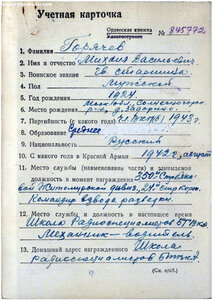 Учетная карточка
Орденская книжка
Удостоверение № 845772
1. Фамилия Горячев
2. Имя и отчество Михаил Васильевич
3. Воинское звание гв. старшина
4. Пол мужской
5. Год рождения 1924
6. Место рождения
7. Партийность (с какого года) 1943 г.
8. Образование Среднее
9. Национальность Русский
10. С какого года в Красной Армии 1942 г., август
11. Место службы (наименование части) и занимаемая
должность в момент награждения
Командир взвода разведки
12. Место службы и должность в настоящее время
Школа Радиоспециалистов
Механик-водитель.
13. Домашний адрес награжденного Школа
радиоспециалистов
(См. н/об.)